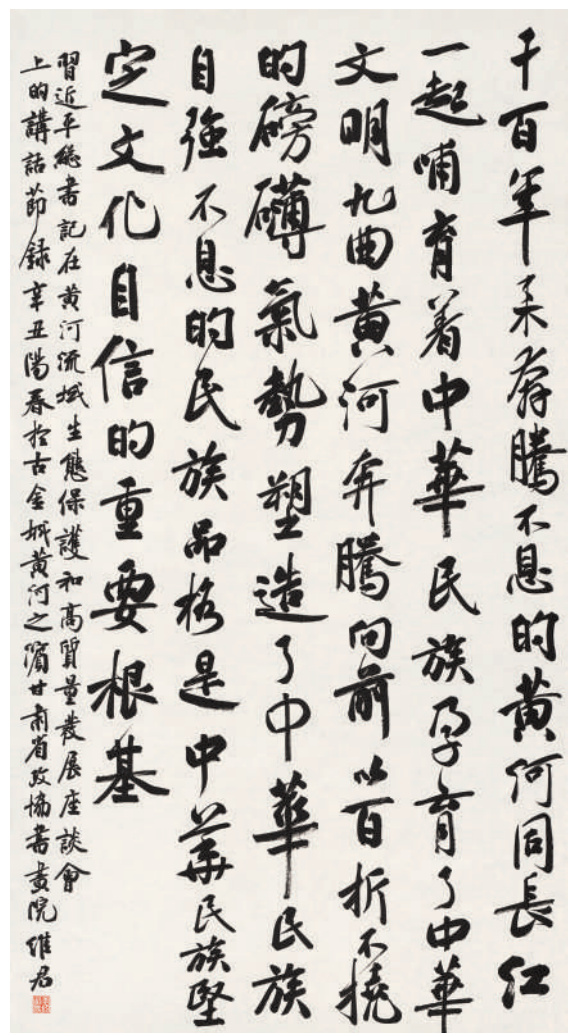 千百年来奔騰不息的黄河同長江
一起哺育着中華民族孕育了中華
文明九曲黄河奔騰向前以百折不撓
的磅礴氣勢塑造了中華民族
自強不息的民族品格是中華民族堅
定文化自信的重要根基
習近平總書記在黄河流域生態保護和高質量發展座談會
上的講話節録辛丑陽春於古金城黄河之濱甘肅省政協書畫院維君